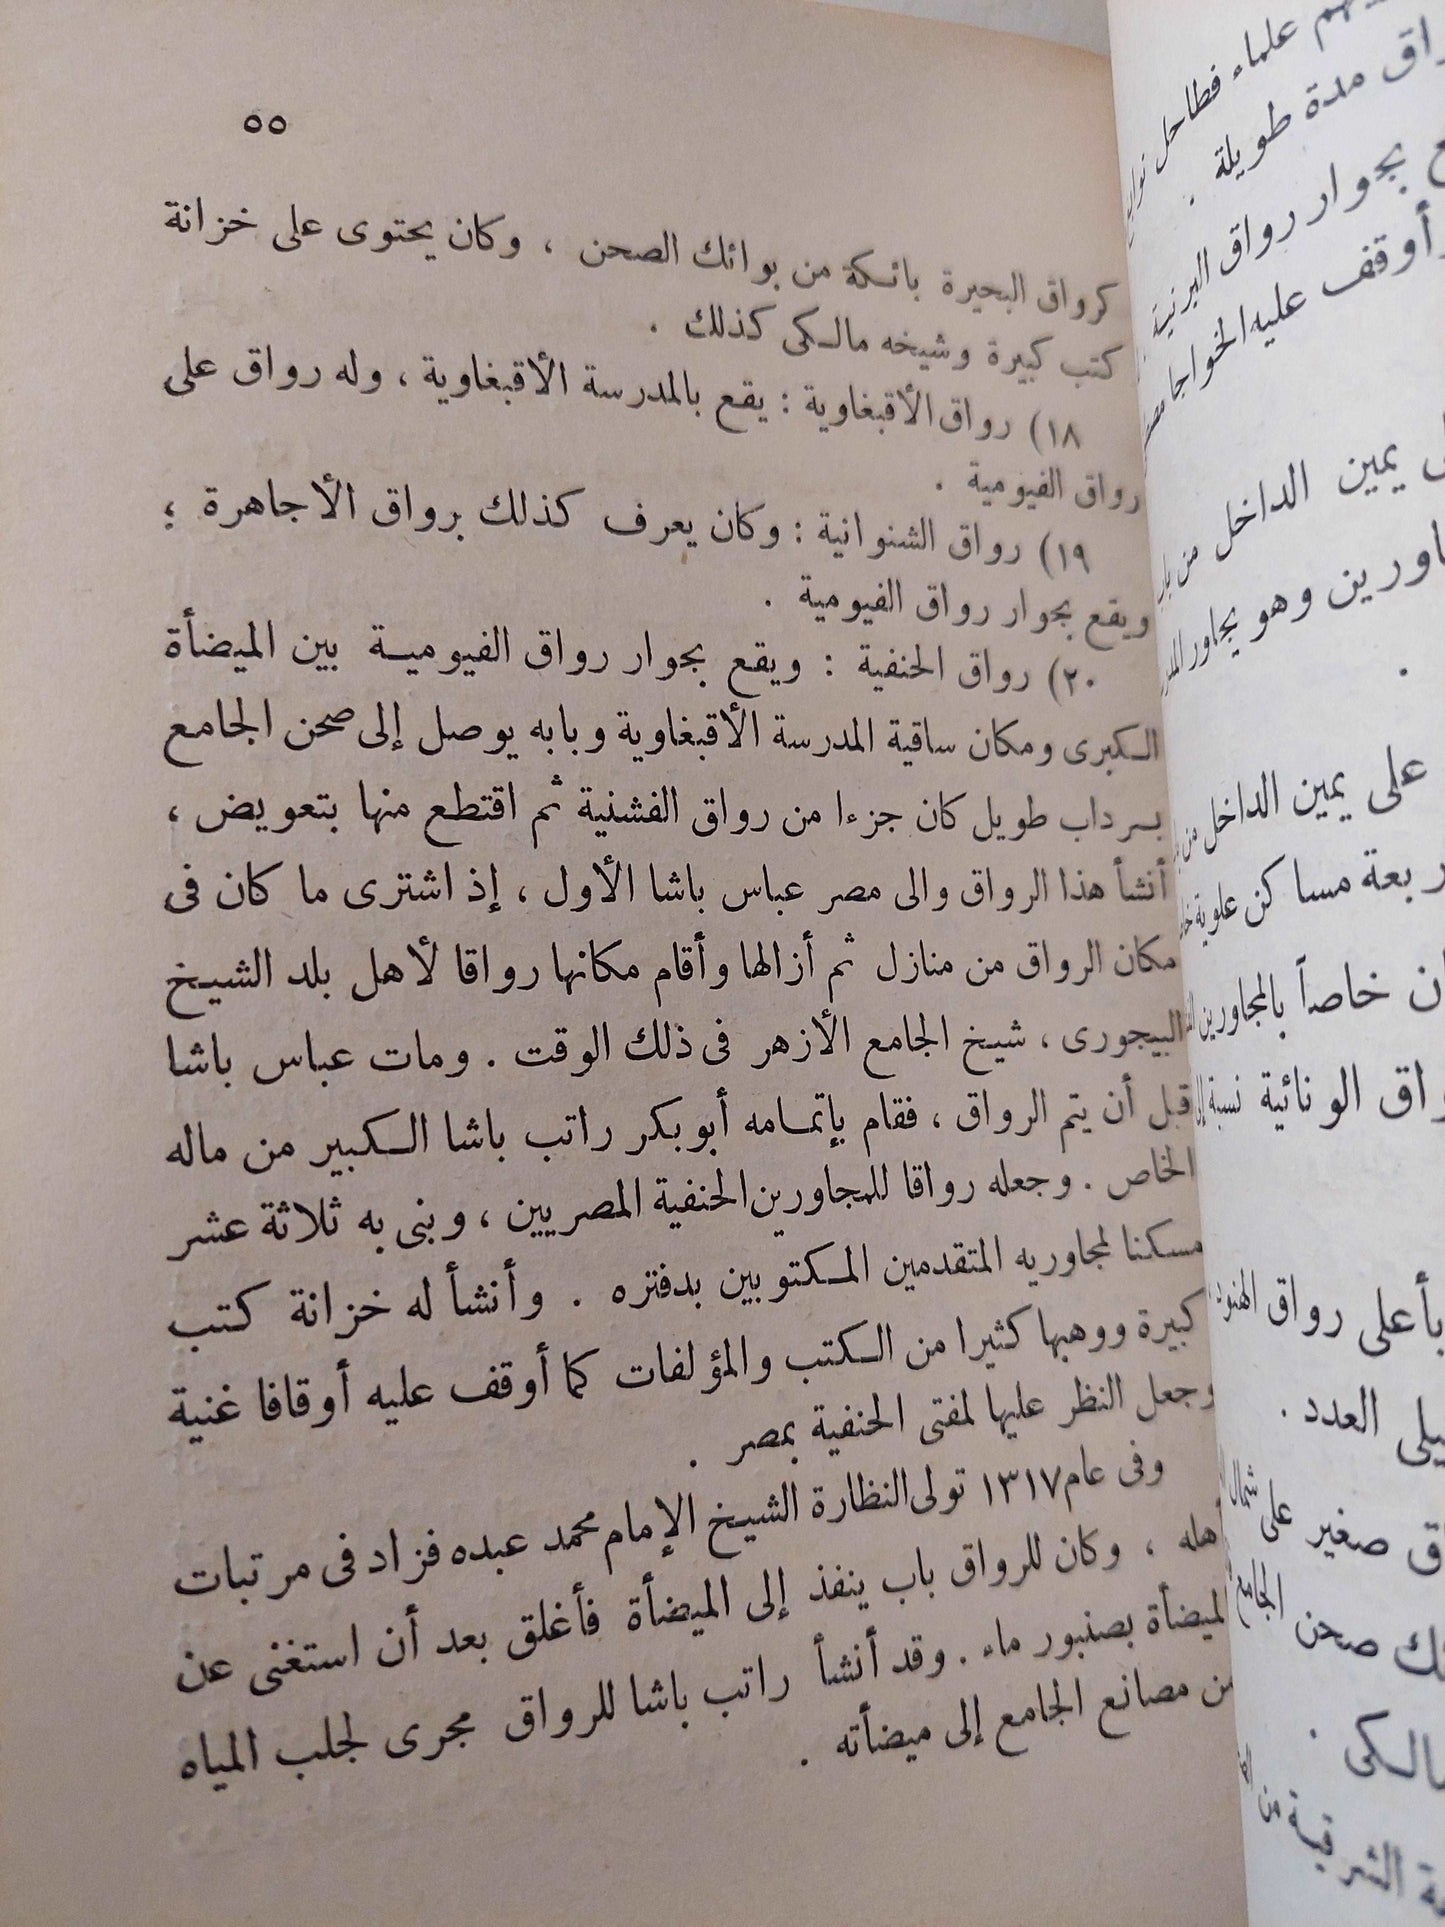 ٥٥
كرواق البحيرة بائكة من بوائك الصحن ، وكان يحتوى على خزانة
كتب كبيرة وشيخه مالكى كذلك .
١٨) رواق الأقبغاوية : يقع بالمدرسة الأقبغاوية ، وله رواق على
رواق الفيومية .
١٩) رواق الشنوانية : وكان يعرف كذلك برواق الأجاهرة ؛
ويقع بجوار رواق الفيومية .
٢٠) رواق الحنفية : ويقع بجوار رواق الفيومية بين الميضأة
الكبرى ومكان ساقية المدرسة الأقبغاوية وبابه يوصل إلى صحن الجامع
بسرداب طويل كان جزءا من رواق الفشنية ثم اقتطع منها بتعويض ،
أنشأ هذا الرواق والى مصر عباس باشا الأول ، إذ اشترى ما كان فى
مكان الرواق من منازل ثم أزالها وأقام مكانها رواقا لأهل بلد الشيخ
البيجورى ، شيخ الجامع الأزهر فى ذلك الوقت . ومات عباس باشا
قبل أن يتم الرواق ، فقام بإتمامه أبو بكر راتب باشا الكبير من ماله
الخاص . وجعله رواقا للمجاورين الحنفية المصريين ، وبنى به ثلاثة عشر
مسكنا لمجاوريه المتقدمين المكتوبين بدفتره . وأنشأ له خزانة كتب
كبيرة ووهبها كثيرا من الكتب والمؤلفات كما أوقف عليه أوقافا غنية
وجعل النظر عليها لمفتى الحنفية بمصر .
وفى عام ١٣١٧ تولى النظارة الشيخ الإمام محمد عبده فزاد فى مرتبات
أهله ، وكان للرواق باب ينفذ إلى الميضأة فأغلق بعد أن استغنى عن
الميضأة بصنبور ماء . وقد أنشأ راتب باشا للرواق مجرى لجلب المياه
من مصانع الجامع إلى ميضأته .
علماء فطاحل
مدة طويلة .
بجوار رواق البرنية
أوقف عليه الخواجا
يمين الداخل من
وهو يجاور
على يمين الداخل من
مساكن علوية
خاصاً بالمجاورين
الونائية نسبة
بأعلى رواق الهنود
العدد .
صغير على شمال
صحن الجامع
من